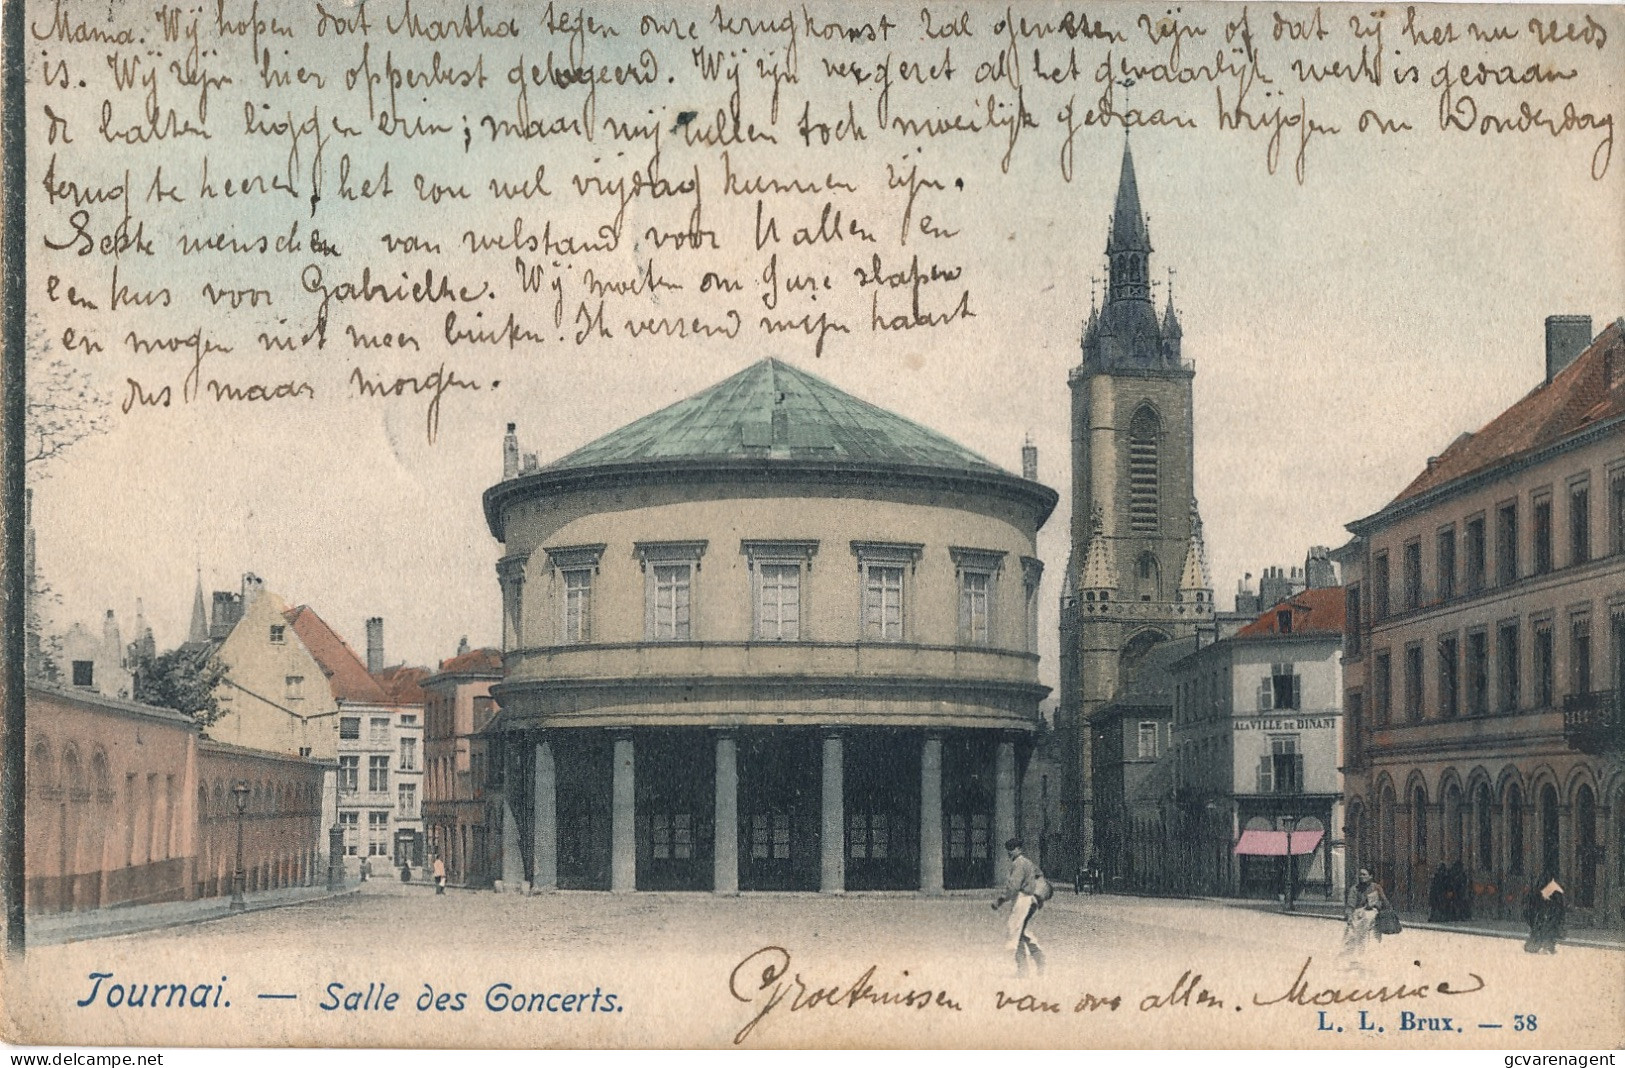 Mama. Wij hopen dat Martha tegen onze terugkomst zal genezen zijn of dat zij het nu reeds
is. Wij zijn hier opperbest gelogeerd. Wij zijn vergeret al het gevaarlijk werk is gedaan
de balken liggen erin; maar wij zullen toch moeilijk gedaan krijgen om Donderdag
terug te keeren, het zou wel vrijdag kunnen zijn.
Beste menschen van welstand voor U allen en
een kus voor Gabrielke. Wij moeten om 9 ure slapen
en mogen niet meer buiten. Ik verzend mijn kaart
dus maar morgen.
A LA VILLE DE DINANT
Tournai. — Salle des Concerts.
Groetenissen van ons allen. Maurice
L. L. Brux. — 38
gcvarenagent